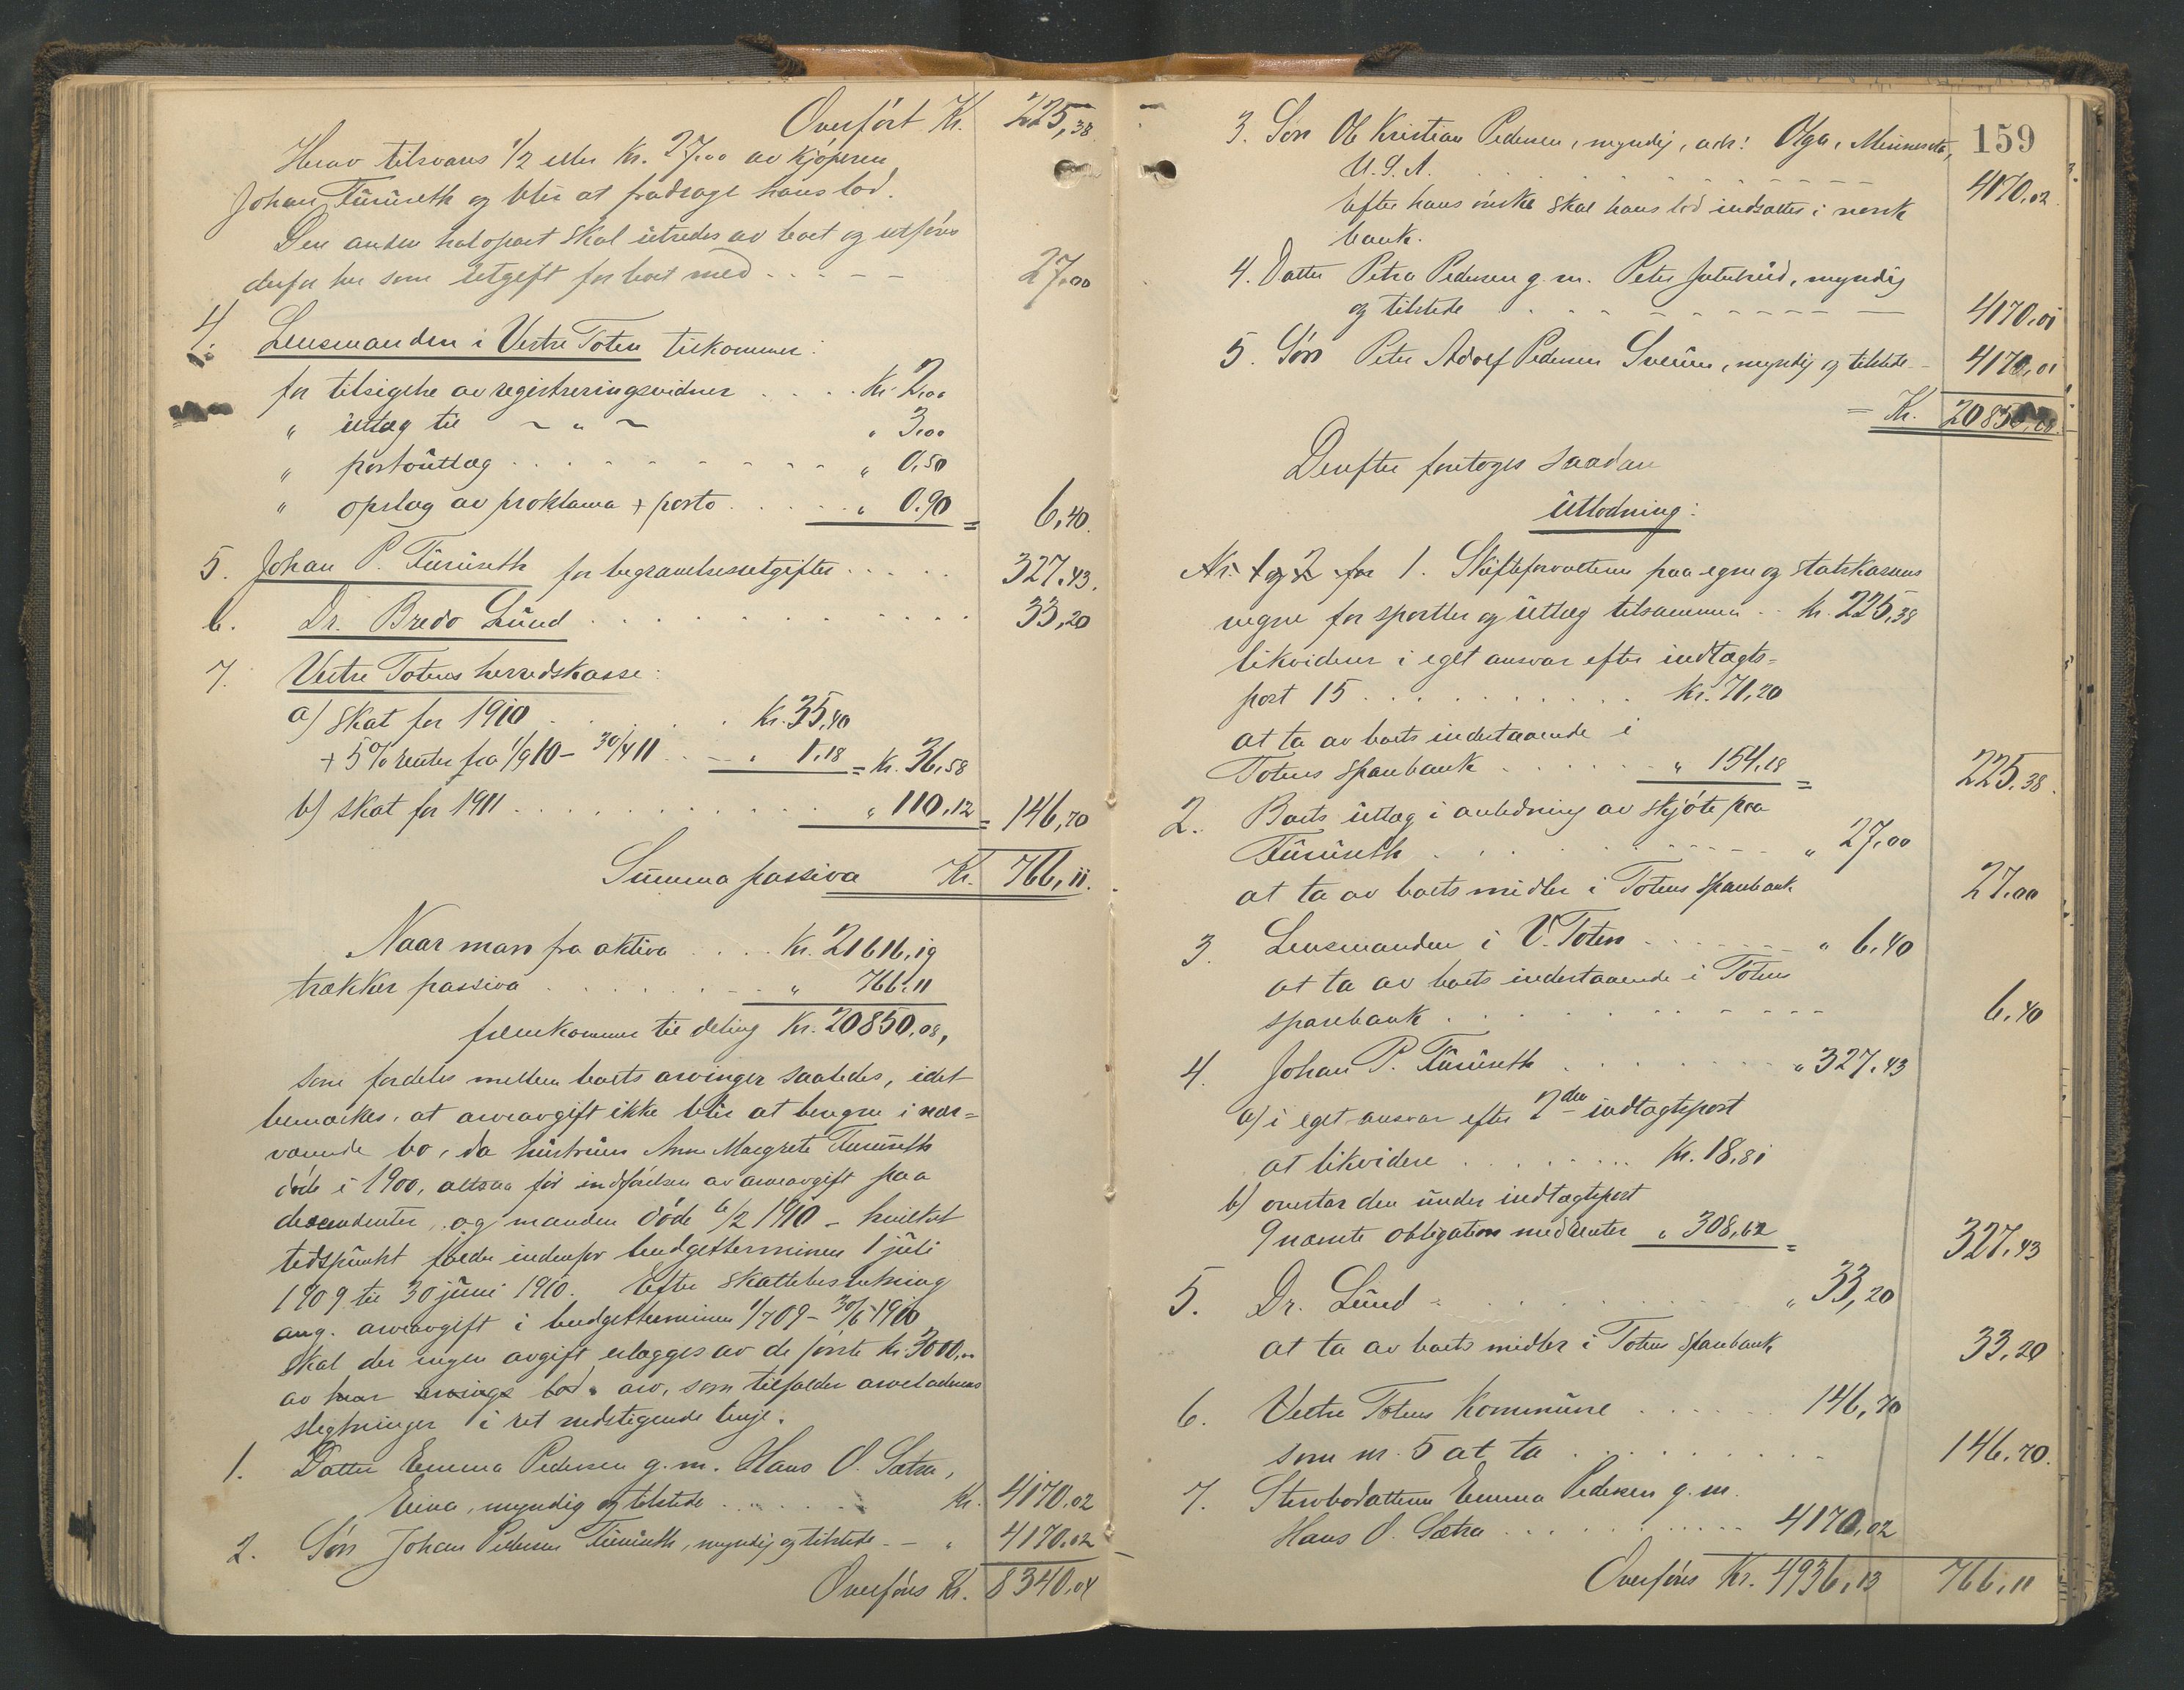 Overført Kr. 225,38
Herav tilsvares 1/2 eller Kr. 27,00 av kjøperen
Johan Furuseth og blir at fradrage hans lod.
Den anden halvpart skal utredes av boet og utføres
derfor her som utgift for boet med - - - - 27,00
4. Lensmanden i Vestre Toten tilkommer:
for tilsigelse av registreringsvidner . . . . Kr. 2,00
" utlæg til ~ " ~ " 3,00
" portoutlæg . . . . . . " 0,50
" opslag av proklama + porto . . . . . " 0.90 = 6,40.
5. Johan P. Furuseth for begravelsesutgifter . . . . . 327,43.
6. Dr. Bredo Lund . . . . . . . . 33,20
7. Vestre Totens herredskasse:
a) skat for 1910 . . . . . . Kr. 35,40
+ 5% renter fra 1/9 10 - 30/4 11 . . - . " 1,18 = Kr. 36,58
b) skat for 1911 . . . . . . . . . " 110,12 = 146,70
Summa passiva Kr. 766,11.
Naar man fra aktiva . . . . Kr. 21616,19
trækker passiva . . . . . " 766,11
fremkommer til deling Kr. 20850,08,
som fordeles mellem boets arvinger saaledes, idet
bemerkes, at arveavgift ikke blir at beregne i nær=
værende bo, da hustruen Anne Margrete Furuseth
døde i 1900, altsaa før indførelsen av arveavgift paa
descendenter, og manden døde 6/2 1910 - hvilket
tidspunkt falder indenfor budgetterminen 1 juli
1909 til 30 juni 1910. Efter skattebeslutning
ang. arveavgift i budgetterminen 1/7 09 - 30/6 1910
skal der ingen avgift erlægges av de første Kr. 3000,00
av hver arvings lod. arv, som tilfalder arveladerens
slegtninger i ret nedstigende linje.
1. Datter Emma Pedersen g. m. Hans O. Sætra,
Eina, myndig og tilstede . . . . . . Kr. 4170,02
2. Søn Johan Pedersen Furuseth, myndig og tilstede - - " 4170,02
Overføres Kr. 8340,04
159
3. Søn Ole Kristian Pedersen, myndig, adr: Olga, Minnesota,
U.S.A. . . . . . . . 4170,02
Efter hans ønske skal hans lod indsættes i norsk
bank.
4. Datter Petra Pedersen g. m. Peter , myndig
og tilstede . . . . . . . 4170,01
5. Søn Peter Adolf Pedersen , myndig og tilstede - 4170,01
= Kr. 20850,08
Derefter foretoges saadan
utlodning:
Nr. 1 og 2 for 1. Skifteforvalteren paa egne og statskassens
vegne for sportler og utlæg tilsammen . . kr. 225,38
likviderer i eget ansvar efter indtægts=
post 15 . . . . . . . . . Kr. 71,20
at ta av boets indestaaende i
Totens sparebank . . . . . . " 154,18 = 225,38.
2. Boets utlæg i anledning av skjøte paa
Furuseth . . . . . . . . . " 27,00
at ta av boets midler i Totens sparebank 27,00
3. Lensmanden i V. Toten . . . . . . " 6,40
at ta av boets indestaaende i Totens
sparebank . . . . . . . . 6,40
4. Johan P. Furuseth . . . . . . . " 327,43
a) i eget ansvar efter 7de indtægtspost
at likvidere . . . . . . . Kr. 18,81
b) overtar den under indtægtspost
9 nævnte obligation med renter " 308,62 = 327,43
5. Dr. Lund . . . . . . . . " 33,20
at ta av boets midler i Totens sparebank 33,20
6. Vestre Totens Kommune . . . . . . 146,70
som nr. 5 at ta . . . . . . . . 146,70.
7. Stervbodatteren Emma Pedersen g. m.
Hans O. Sætra . . . . . . . . . 4170,02
Overføres Kr. 4936,13 766,11